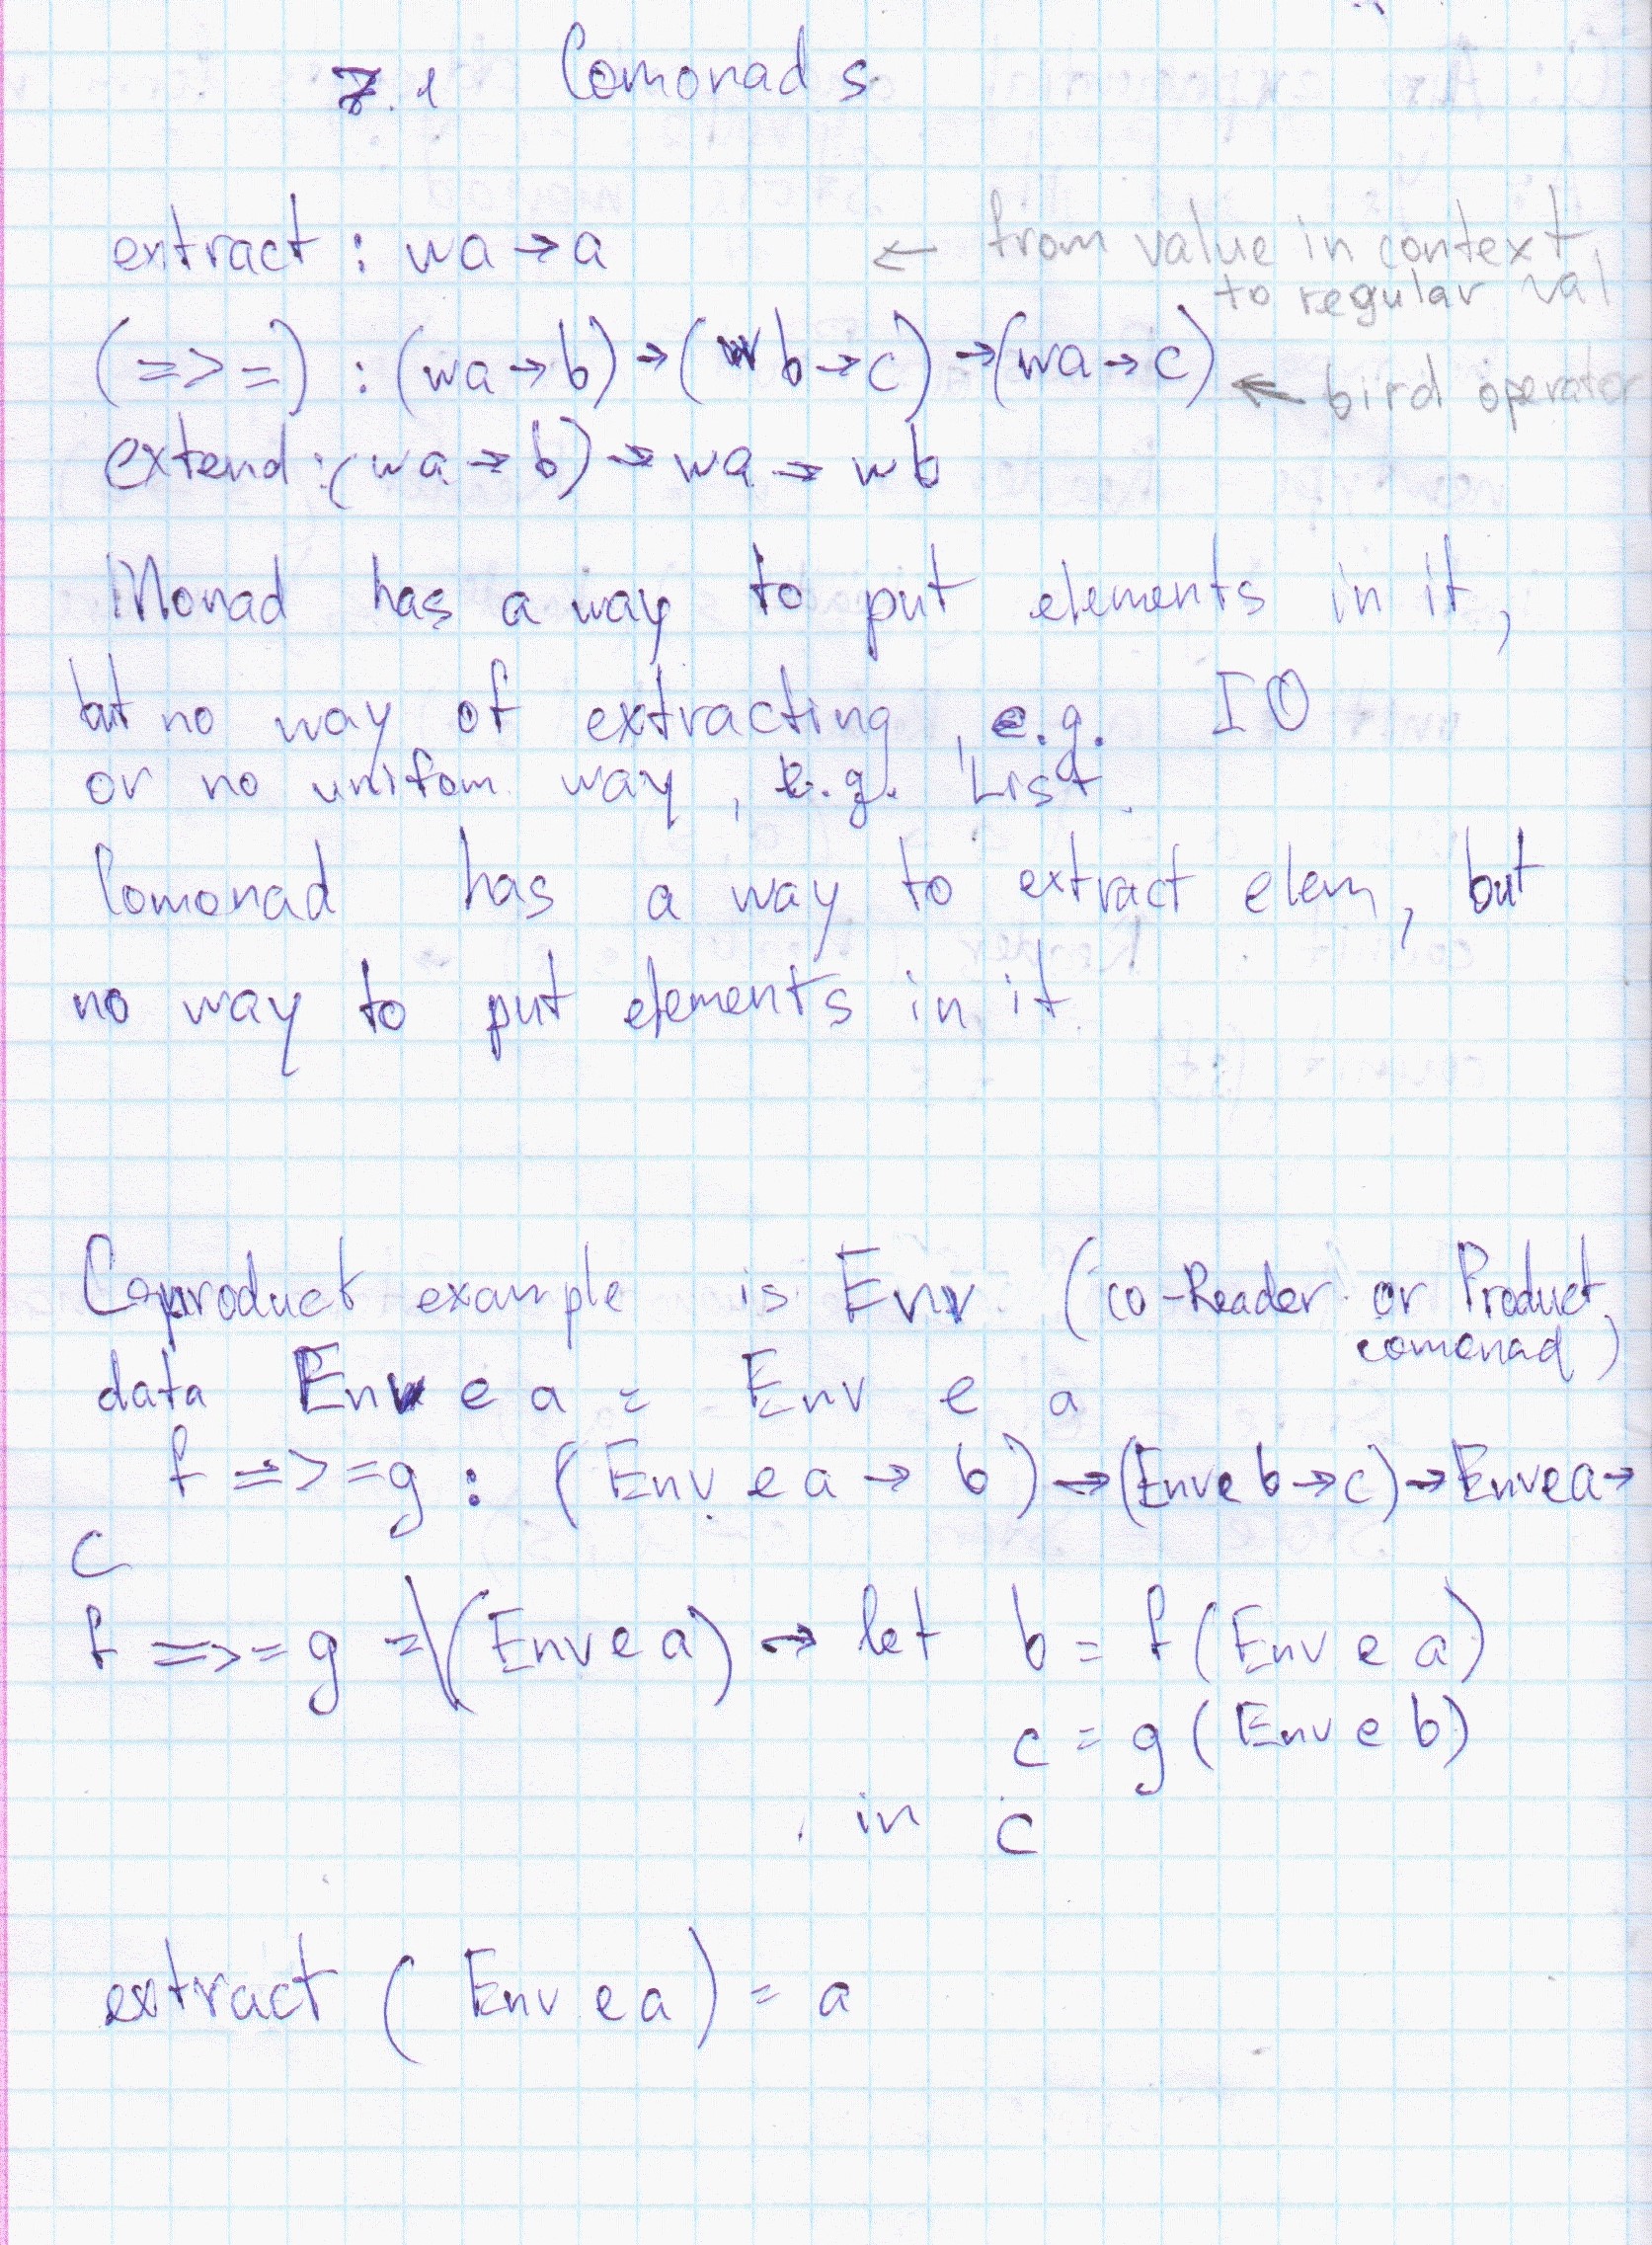 7.1 Comonads
extract : wa → a ← from value in context
to regular val
(=>=) : (wa → b) → (wb → c) → (wa → c) ← bird operator
extend : (wa → b) → wa → wb
Monad has a way to put elements in it,
but no way of extracting, e.g. IO
or no uniform way, e.g. List.
Comonad has a way to extract elem, but
no way to put elements in it.
Coproduct example is Env (co-Reader or Product
comonad)
data Env e a = Env e a
f =>= g : (Env e a → b) → (Env e b → c) → Env e a →
c
f =>= g = \(Env e a) → let b = f (Env e a)
c = g (Env e b)
in c
extract (Env e a) = a